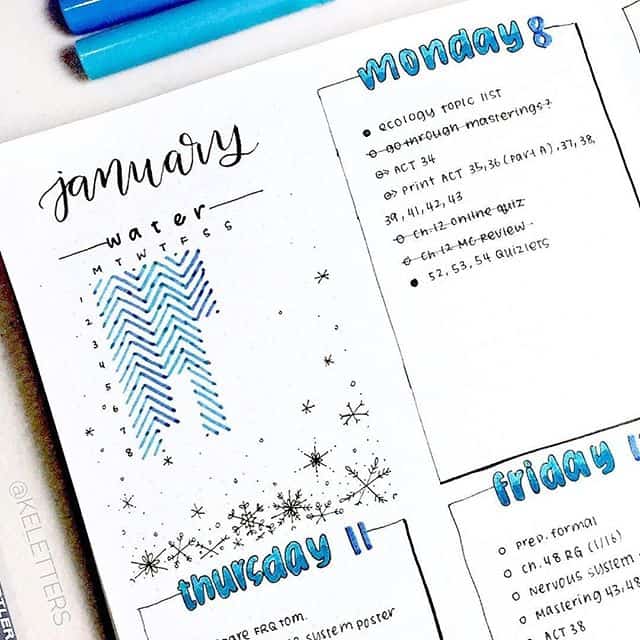 january
water
M T W T F S S
1
2
3
4
5
6
7
8
monday 8
ecology topic list
go through masterings?
ACT 34
Print ACT 35, 36 (part A), 37, 38,
39, 41, 42, 43
Ch. 12 online quiz
Ch 12 MC Review.
52, 53, 54 Quizlets
thursday 11
FRQ tom.
system poster
friday
prep. formal
Ch. 48 RG (1/16)
nervous system
Mastering 43, 48
ACT 38
@KELETTERS
TLER